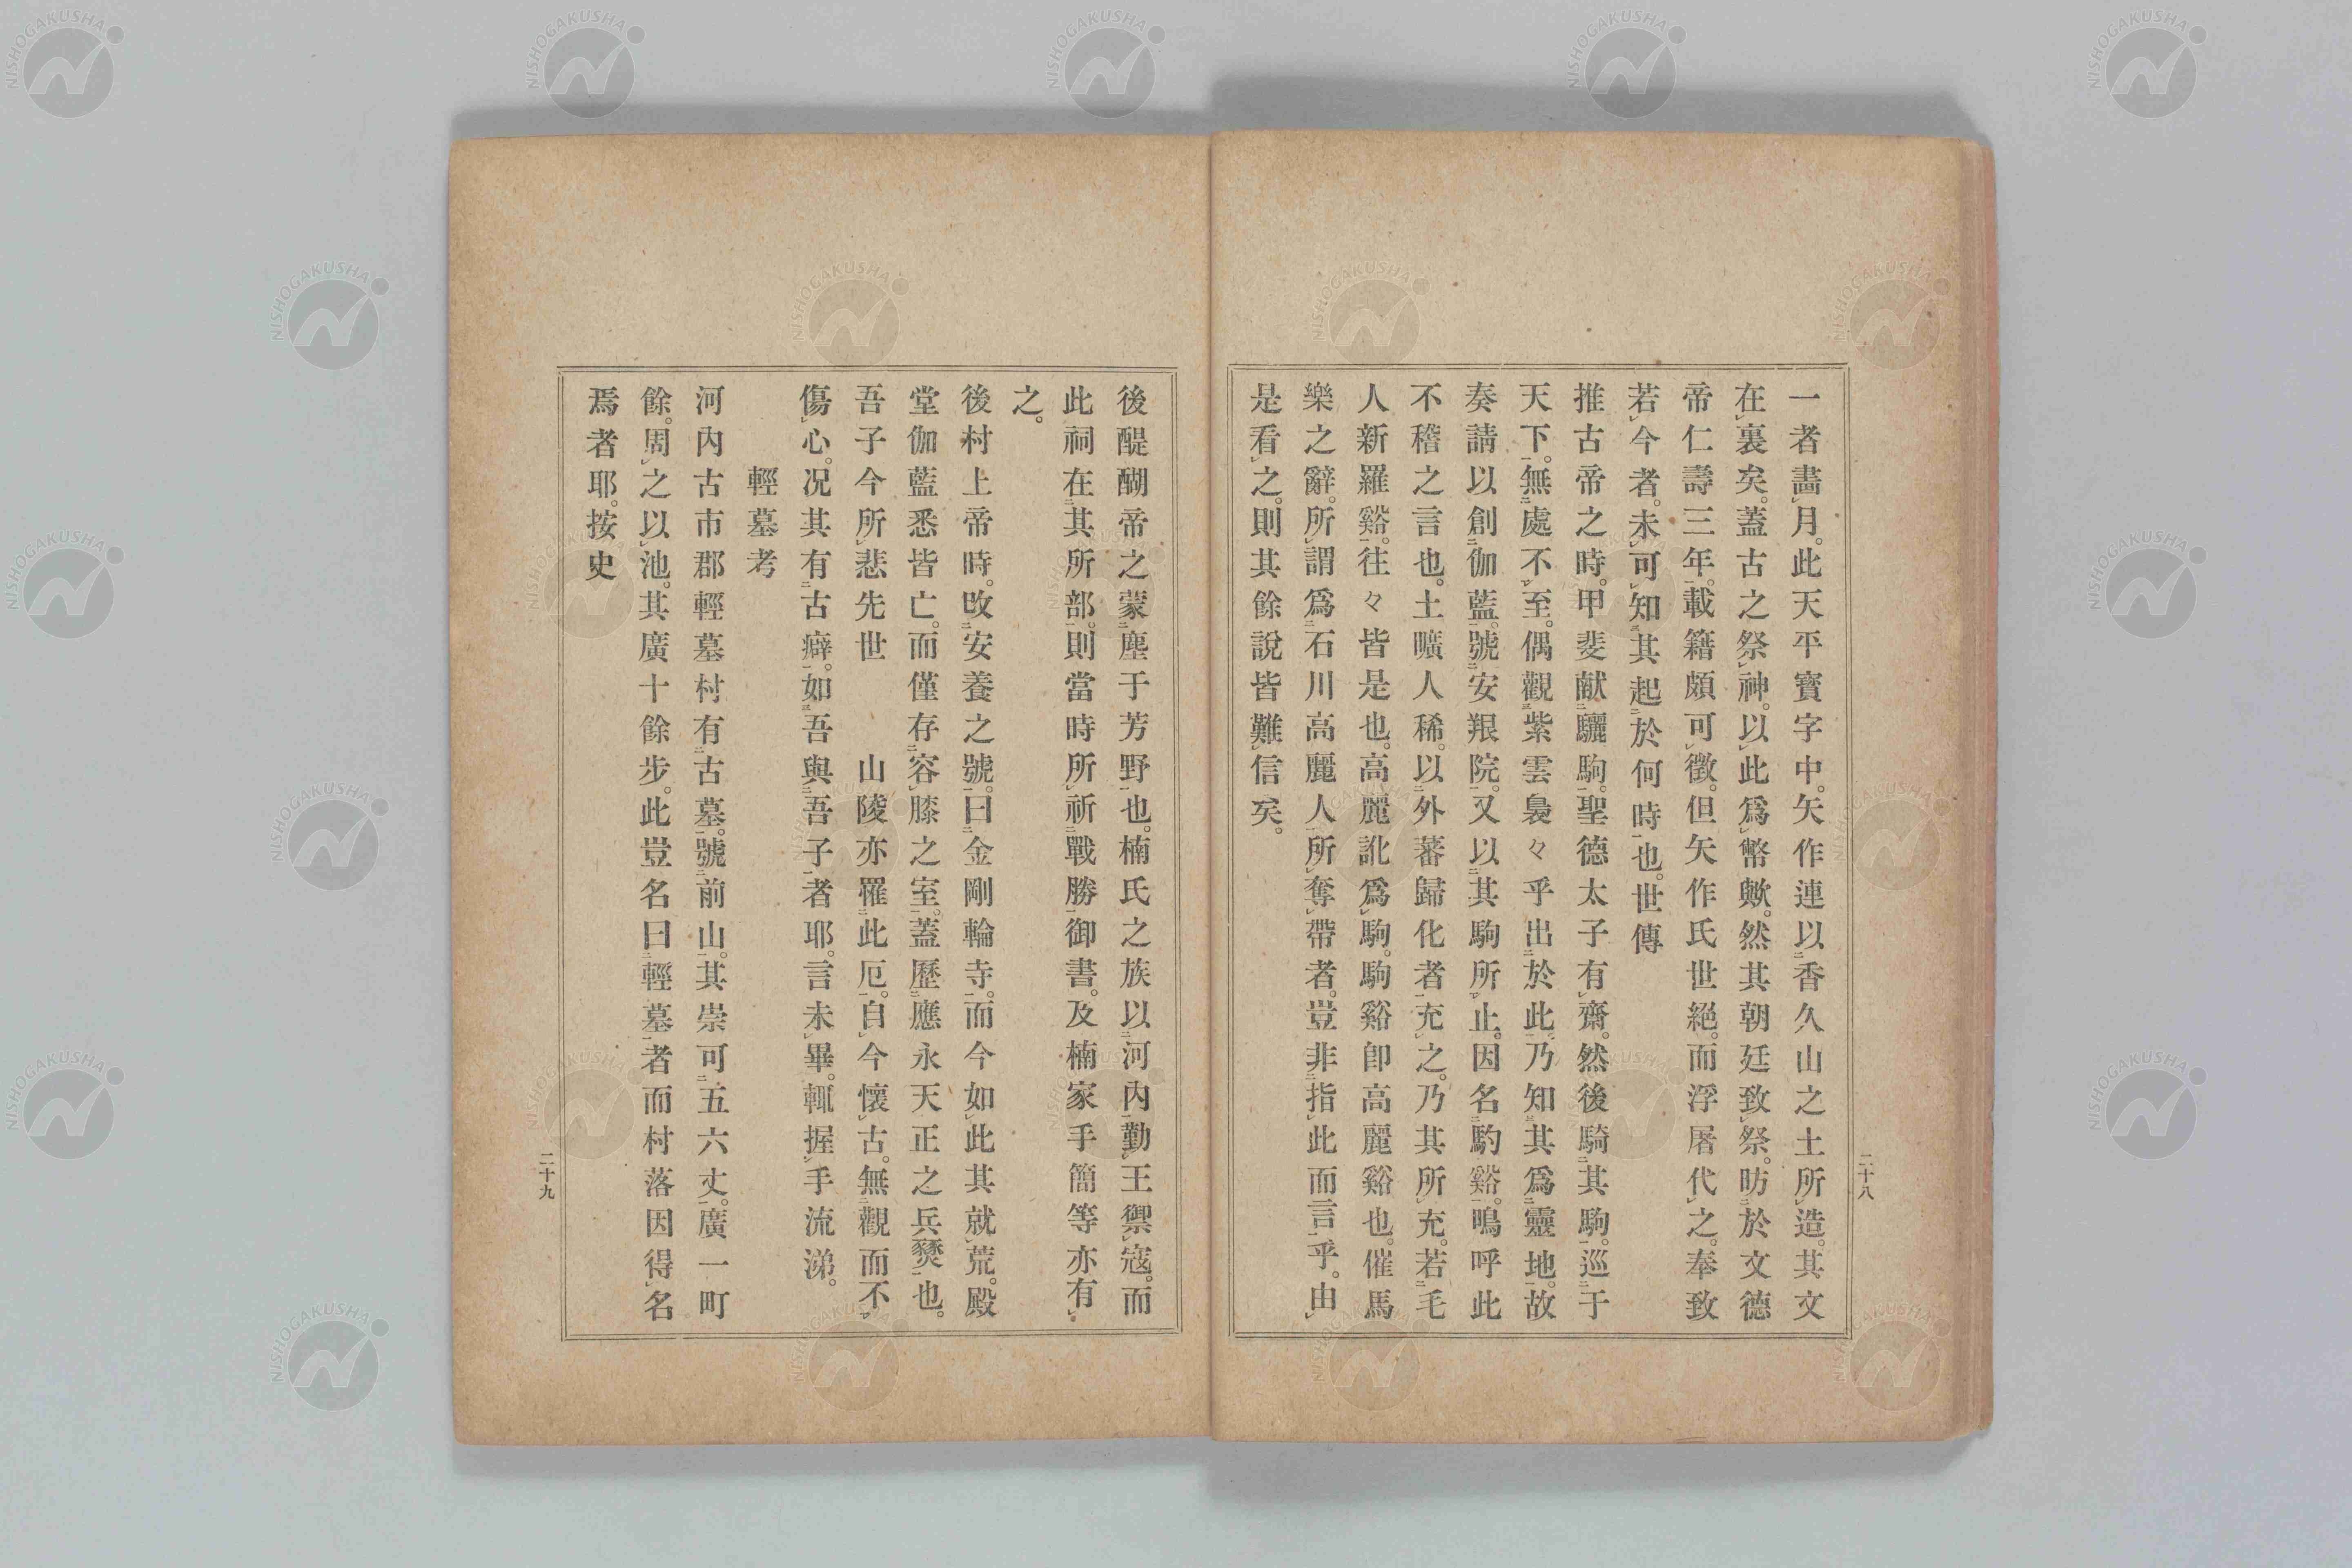 一者畵月。此天平寶字中。矢作連以香久山之土所造。其文
在裏矣。蓋古之祭神。以此爲幣歟。然其朝廷致祭。昉於文德
帝仁壽三年。載籍頗可徵。但矢作氏世絕。而浮屠代之。奉致
若今者。未可知其起於何時也。世傳
推古帝之時。甲斐献驪駒。聖德太子有齋。然後騎其駒。巡于
天下。無處不至。偶觀紫雲裊々乎出於此。乃知其爲靈地。故
奏請以創伽藍。號安艱院。又以其駒所止。因名駒谿。嗚呼此
不稽之言也。土曠人稀。以外蕃歸化者充之。乃其所充。若毛
人新羅谿。往々皆是也。高麗訛爲駒。駒谿卽高麗谿也。催馬
樂之辭。所謂爲石川高麗人所奪帶者。豈非指此而言乎。由
是看之。則其餘說皆難信矣。
二十八
後醍醐帝之蒙塵于芳野也。楠氏之族以河內勤王禦寇。而
此祠在其所部。則當時所祈戰勝御書。及楠家手簡等亦有
之。
後村上帝時。改安養之號。曰金剛輪寺。而今如此其就荒。殿
堂伽藍悉皆亡。而僅存容膝之室。蓋歷應永天正之兵燹也。
吾子今所悲先世　山陵亦罹此厄。自今懷古。無觀而不
傷心。况其有古癖。如吾與吾子者耶。言未畢。輒握手流涕。
輕墓考
河內古市郡輕墓村有古墓。號前山。其崇可五六丈。廣一町
餘。周之以池。其廣十餘步。此豈名曰輕墓者而村落因得名
焉者耶。按史
二十九